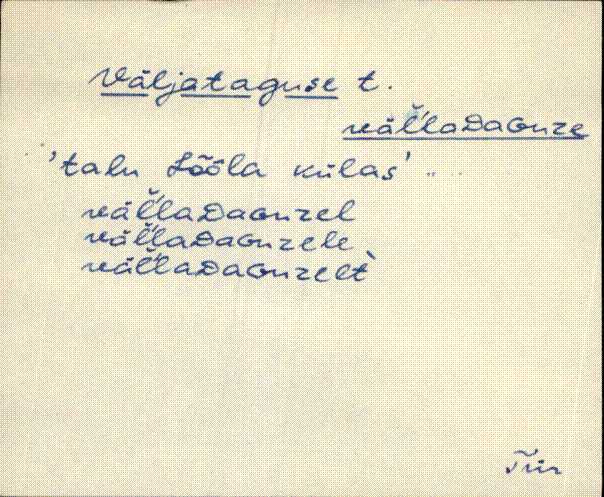 Väljataguse t.
väĺĺaDaGuze
'talu Lööla külas'
väĺĺaDaGuzel
väĺĺaDaGuzele
väĺĺaDaGuzelt̀